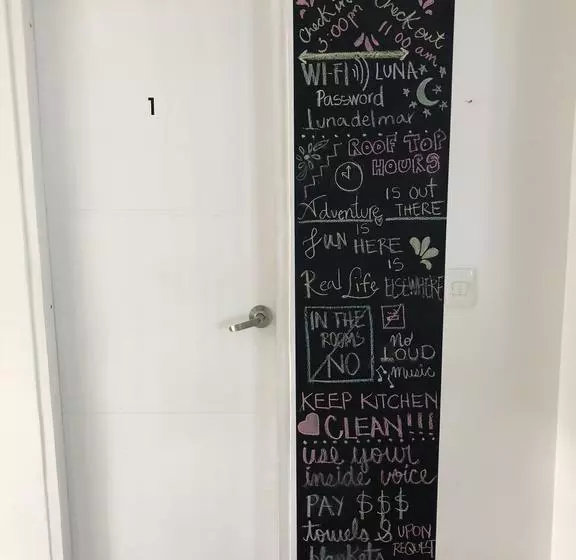 1
Check in
3:00pm
Check out
11:00 am
WI-FI LUNA
Password
Lunadelmar
ROOF TOP
HOURS
Adventure IS OUT THERE
FUN IS HERE
Real Life IS ELSEWHERE
IN THE
ROOMS
NO
No
LOUD
music
KEEP KITCHEN
CLEAN!!!
use your
inside voice
PAY $$$
towels & UPON
blankets REQUEST